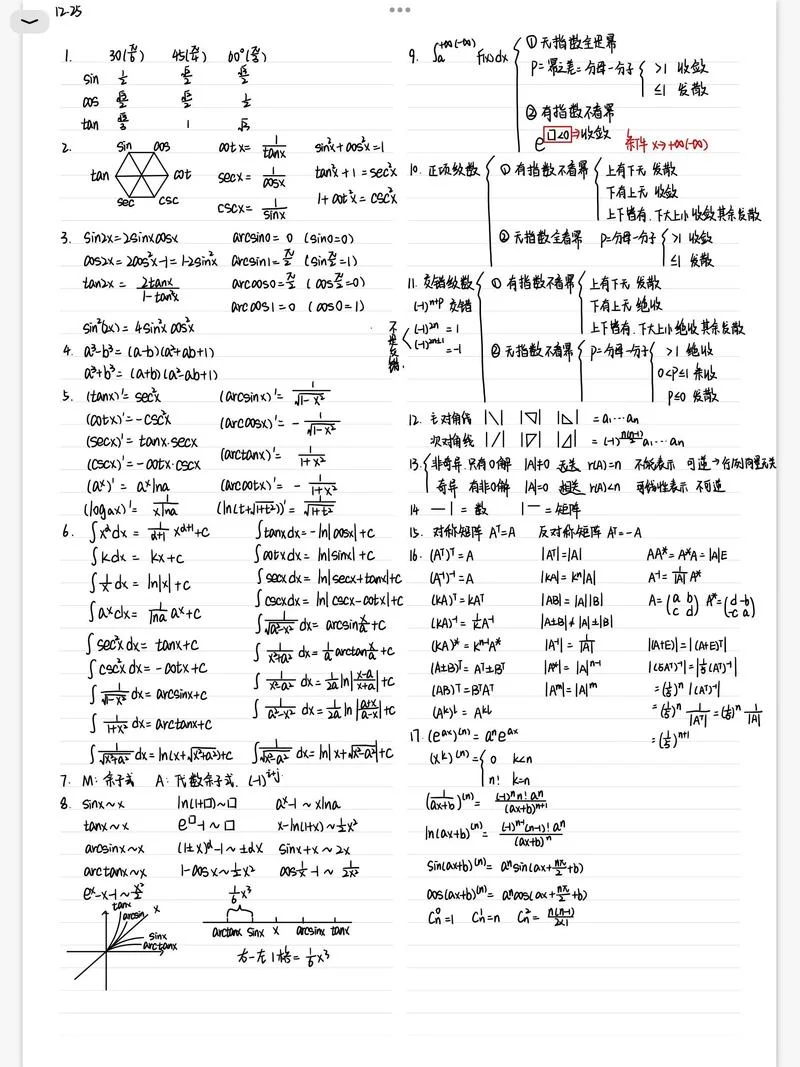 12-25
1. 30(π/6) 45(π/4) 60°(π/3)
sin 1/2 √2/2 √3/2
cos √3/2 √2/2 1/2
tan √3/3 1 √3
2. sin cos tan cot sec csc
cotx = 1/tanx sin²x+cos²x=1
secx = 1/cosx tan²x+1=sec²x
cscx = 1/sinx 1+cot²x=csc²x
3. sin2x=2sinxcosx arcsin0=0 (sin0=0)
cos2x=2cos²x-1=1-2sin²x arcsin1=π/2 (sinπ/2=1)
tan2x = 2tanx/1-tan²x arccos0=π/2 (cosπ/2=0)
arccos1=0 (cos0=1)
sin²(2x)=4sin²xcos²x
4. a³-b³=(a-b)(a²+ab+1)
a³+b³=(a+b)(a²-ab+1)
5. (tanx)'=sec²x (arcsinx)'= 1/√1-x²
(cotx)'=-csc²x (arccosx)'= - 1/√1-x²
(secx)'=tanx·secx (arctanx)'= 1/1+x²
(cscx)'=-cotx·cscx (arccotx)'= - 1/1+x²
(aˣ)'=aˣlna (ln(t+√1+t²))'= 1/√1+t²
(logax)'= 1/xlna
6. ∫x^αdx = 1/α+1 x^α+1+c ∫tanxdx=-ln|cosx|+c
∫kdx = kx+c ∫cotxdx=ln|sinx|+c
∫1/x dx = ln|x|+c ∫secxdx=ln|secx+tanx|+c
∫aˣdx= 1/lna aˣ+c ∫cscxdx=ln|cscx-cotx|+c
∫1/√a²-x² dx= arcsin x/a+c
∫sec²xdx=tanx+c ∫1/x²+a² dx=1/a arctan x/a+c
∫csc²xdx=-cotx+c ∫1/x²-a² dx=1/2a ln|x-a/x+a|+c
∫1/√1-x² dx=arcsinx+c ∫1/a²-x² dx=1/2a ln|a+x/a-x|+c
∫1/1+x² dx=arctanx+c
∫1/√x²+a² dx=ln(x+√x²+a²)+c ∫1/√x²-a² dx=ln|x+√x²-a²|+c
7. M:余子式 A:代数余子式 (-1)^i+j
8. sinx~x ln(1+□)~□ aˣ-1~xlna
tanx~x e^□-1~□ x-ln(1+x)~½x²
arcsinx~x (1±x)^α-1~±αx sinx+x~2x
arctanx~x 1-cosx~½x² cos1/x-1~ 1/2x²
eˣ-x-1~x²/2 1/6x³
tanx arcsin x sinx arctanx
arctanx sinx x arcsinx tanx
右-左1格=1/6x³
9. ∫a^+∞(-∞) f(x)dx
①无指数全是幂
P=幂之差=分母-分子 >1 收敛
≤1 发散
②有指数不看幂
e^□<0→收敛 条件x→+∞(-∞)
10. 正项级数 ①有指数不看幂 上有下无 发散
下有上无 收敛
上下皆有,下大上小收敛其余发散
②无指数全看幂 P=分母-分子 >1 收敛
≤1 发散
11. 交错级数 ①有指数不看幂 上有下无 发散
(-1)^n+p 交错 下有上无 绝收
不是交错 (-1)^2n=1 上下皆有,下大上小绝收其余发散
(-1)^2n±1=-1 ②无指数不看幂 P=分母-分子 >1 绝收
0<p≤1 条收
p≤0 发散
12. 主对角线 |\| |▽| |◺| =a₁…an
次对角线 |/| |▽| |◿| =(-1)^n(n-1)/2 a₁…an
13. 非奇异 只有0解 |A|≠0 无关 r(A)=n 不能表示 可逆→行/列向量无关
奇异 有非0解 |A|=0 相关 r(A)<n 可线性表示 不可逆
14 — | = 数 | — = 矩阵
15. 对称矩阵 Aᵀ=A 反对称矩阵 Aᵀ=-A
16. (Aᵀ)ᵀ=A |Aᵀ|=|A| AA*=A*A=|A|E
(A⁻¹)⁻¹=A |KA|=Kⁿ|A| A⁻¹=1/|A| A*
(KA)ᵀ=KAᵀ |AB|=|A||B| A=(a b c d) A*=(d -b -c a)
(KA)⁻¹=1/K A⁻¹ |A±B|≠|A|±|B|
(KA)*=Kⁿ⁻¹A* |A⁻¹|=1/|A| |A+E|=|(A+E)ᵀ|
(A±B)ᵀ=Aᵀ±Bᵀ |A*|=|A|ⁿ⁻¹ |(5A)ᵀ⁻¹|=|1/5(Aᵀ)⁻¹|
(AB)ᵀ=BᵀAᵀ |Aᵐ|=|A|ᵐ =(1/5)ⁿ|(Aᵀ)⁻¹|
(Aᵏ)ˡ=Aᵏˡ =(1/5)ⁿ 1/|Aᵀ|=(1/5)ⁿ 1/|A|
=(1/5)ⁿ⁺¹
17. (e^ax)^(n)=aⁿe^ax
(xᵏ)^(n)= 0 k<n
n! k=n
(1/ax+b)^(n)= (-1)ⁿn!aⁿ/(ax+b)ⁿ⁺¹
ln(ax+b)^(n)= (-1)ⁿ⁻¹(n-1)!aⁿ/(ax+b)ⁿ
sin(ax+b)^(n)=aⁿsin(ax+nπ/2+b)
cos(ax+b)^(n)=aⁿcos(ax+nπ/2+b)
Cn⁰=1 Cn¹=n Cn²= n(n-1)/2×1